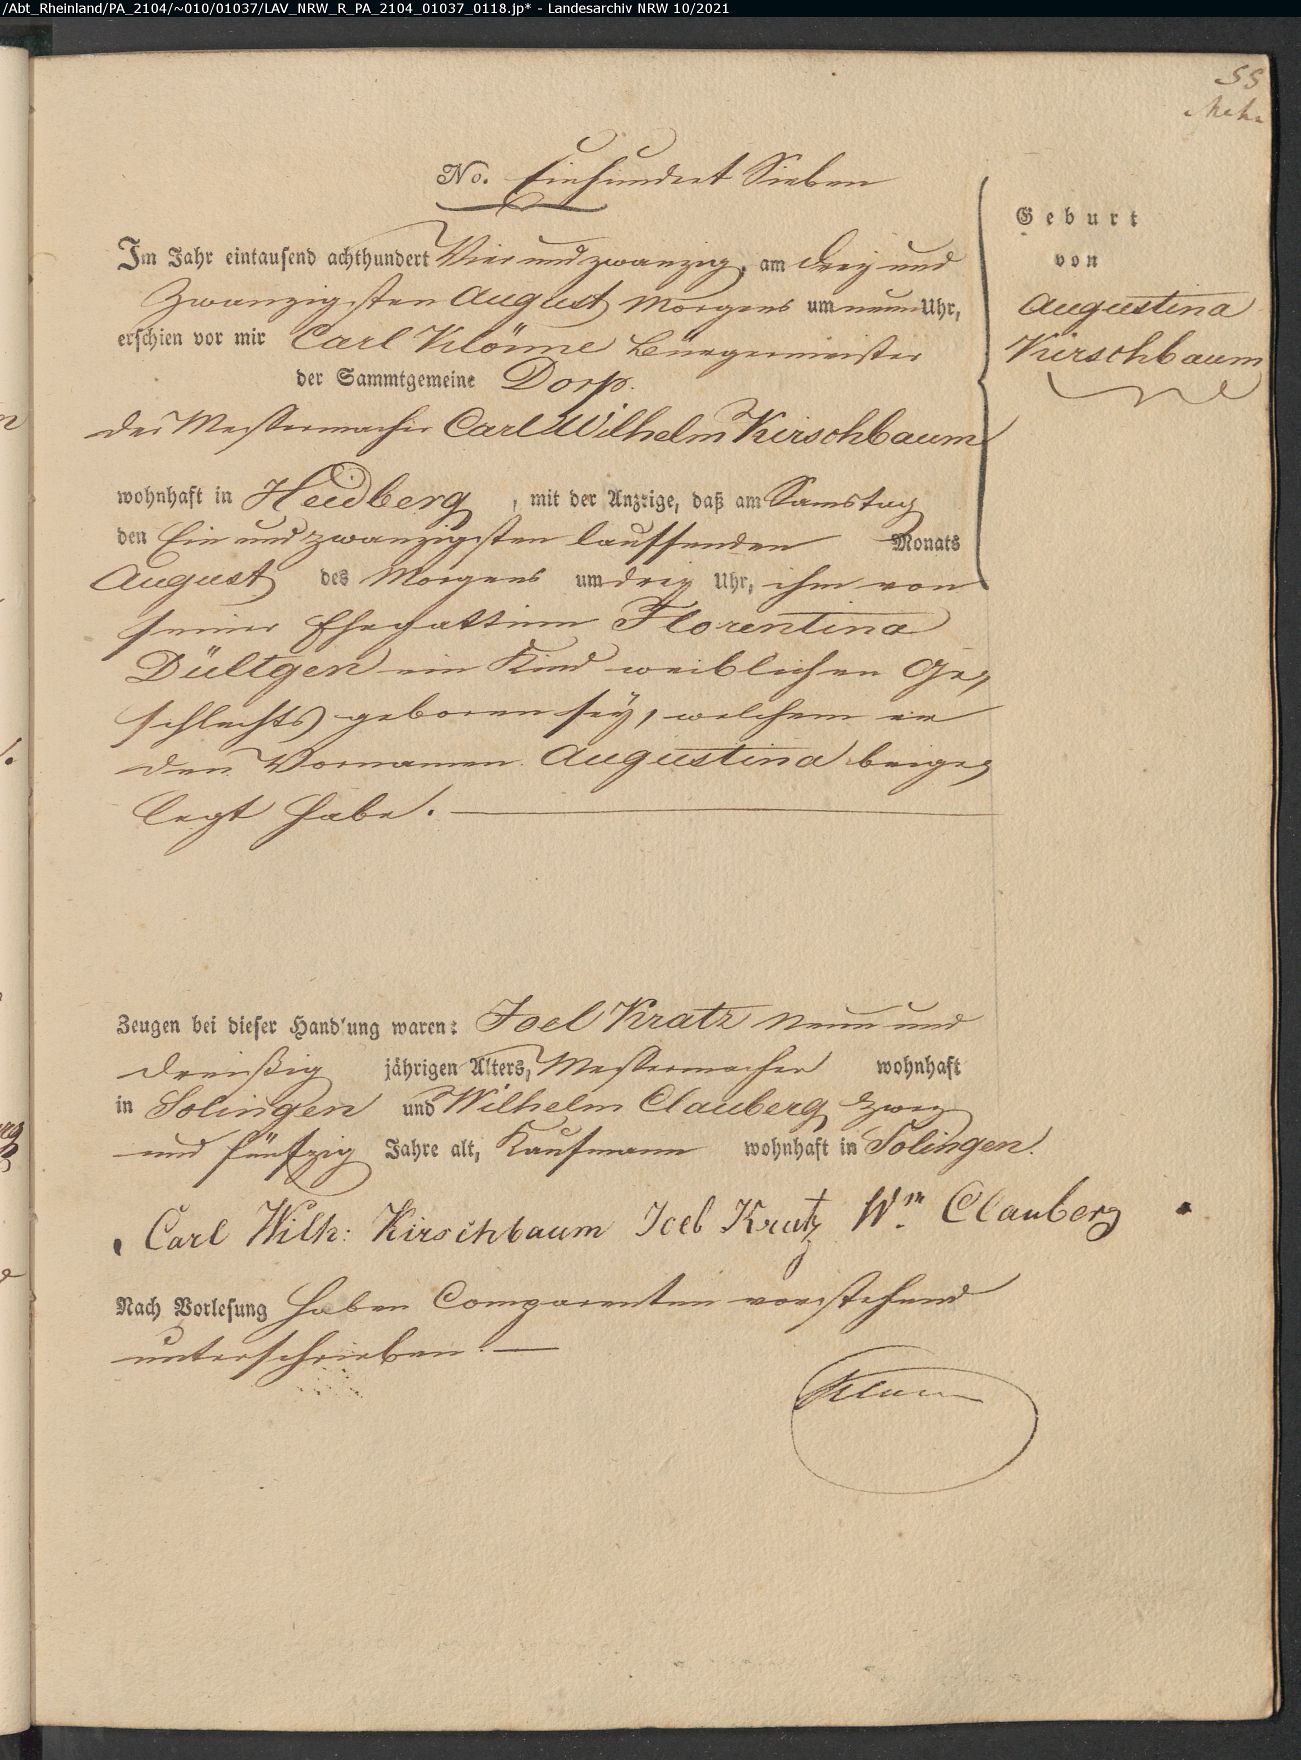 /Abt_Rheinland/PA_2104/~010/01037/LAV_NRW_R_PA_2104_01037_0118.jp* - Landesarchiv NRW 10/2021
55
No. Einhundert Sieben
Geburt
von
Augustina
Kirschbaum
Im Jahr eintausend achthundert Vier und zwanzig, am drey und
zwanzigsten August Morgens um neun Uhr,
erschien vor mir Carl Klönne Bürgermeister
der Sammtgemeine Dorp.
der Messermacher Carl Wilhelm Kirschbaum
wohnhaft in Heidberg, mit der Anzeige, daß am Samstag
den Ein und zwanzigsten lauffenden Monats
August des Morgens um drey Uhr, ihm von
seiner Ehegattinn Florentina
Dültgen ein Kind weiblichen Ge-
schlechts geboren sey, welchem er
den Vornamen Augustina beige-
legt habe.
Zeugen bei dieser Handlung waren: Joel Kratz neun und
dreißig jährigen Alters, Messermacher wohnhaft
in Solingen und Wilhelm Clauberg zwey
und fünfzig Jahre alt, Kaufmann wohnhaft in Solingen.
Carl Wilh: Kirschbaum Joel Kratz Wm Clauberg
Nach Vorlesung haben Comparenten vorstehend
unterschrieben.